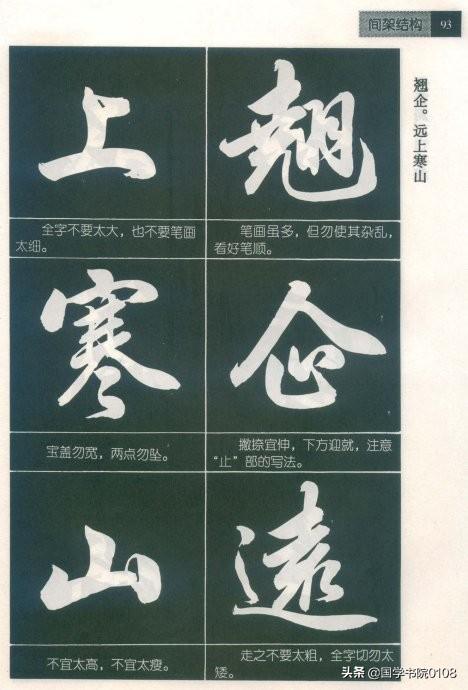 间架结构 93
翘企。远上寒山
翹
笔画虽多，但勿使其杂乱，
看好笔顺。
企
撇捺宜伸，下方迎就，注意
“止”部的写法。
遠
走之不要太粗，全字切勿太
矮。
上
全字不要太大，也不要笔画
太细。
寒
宝盖勿宽，两点勿坠。
山
不宜太高，不宜太瘦。
头条@国学书院0108